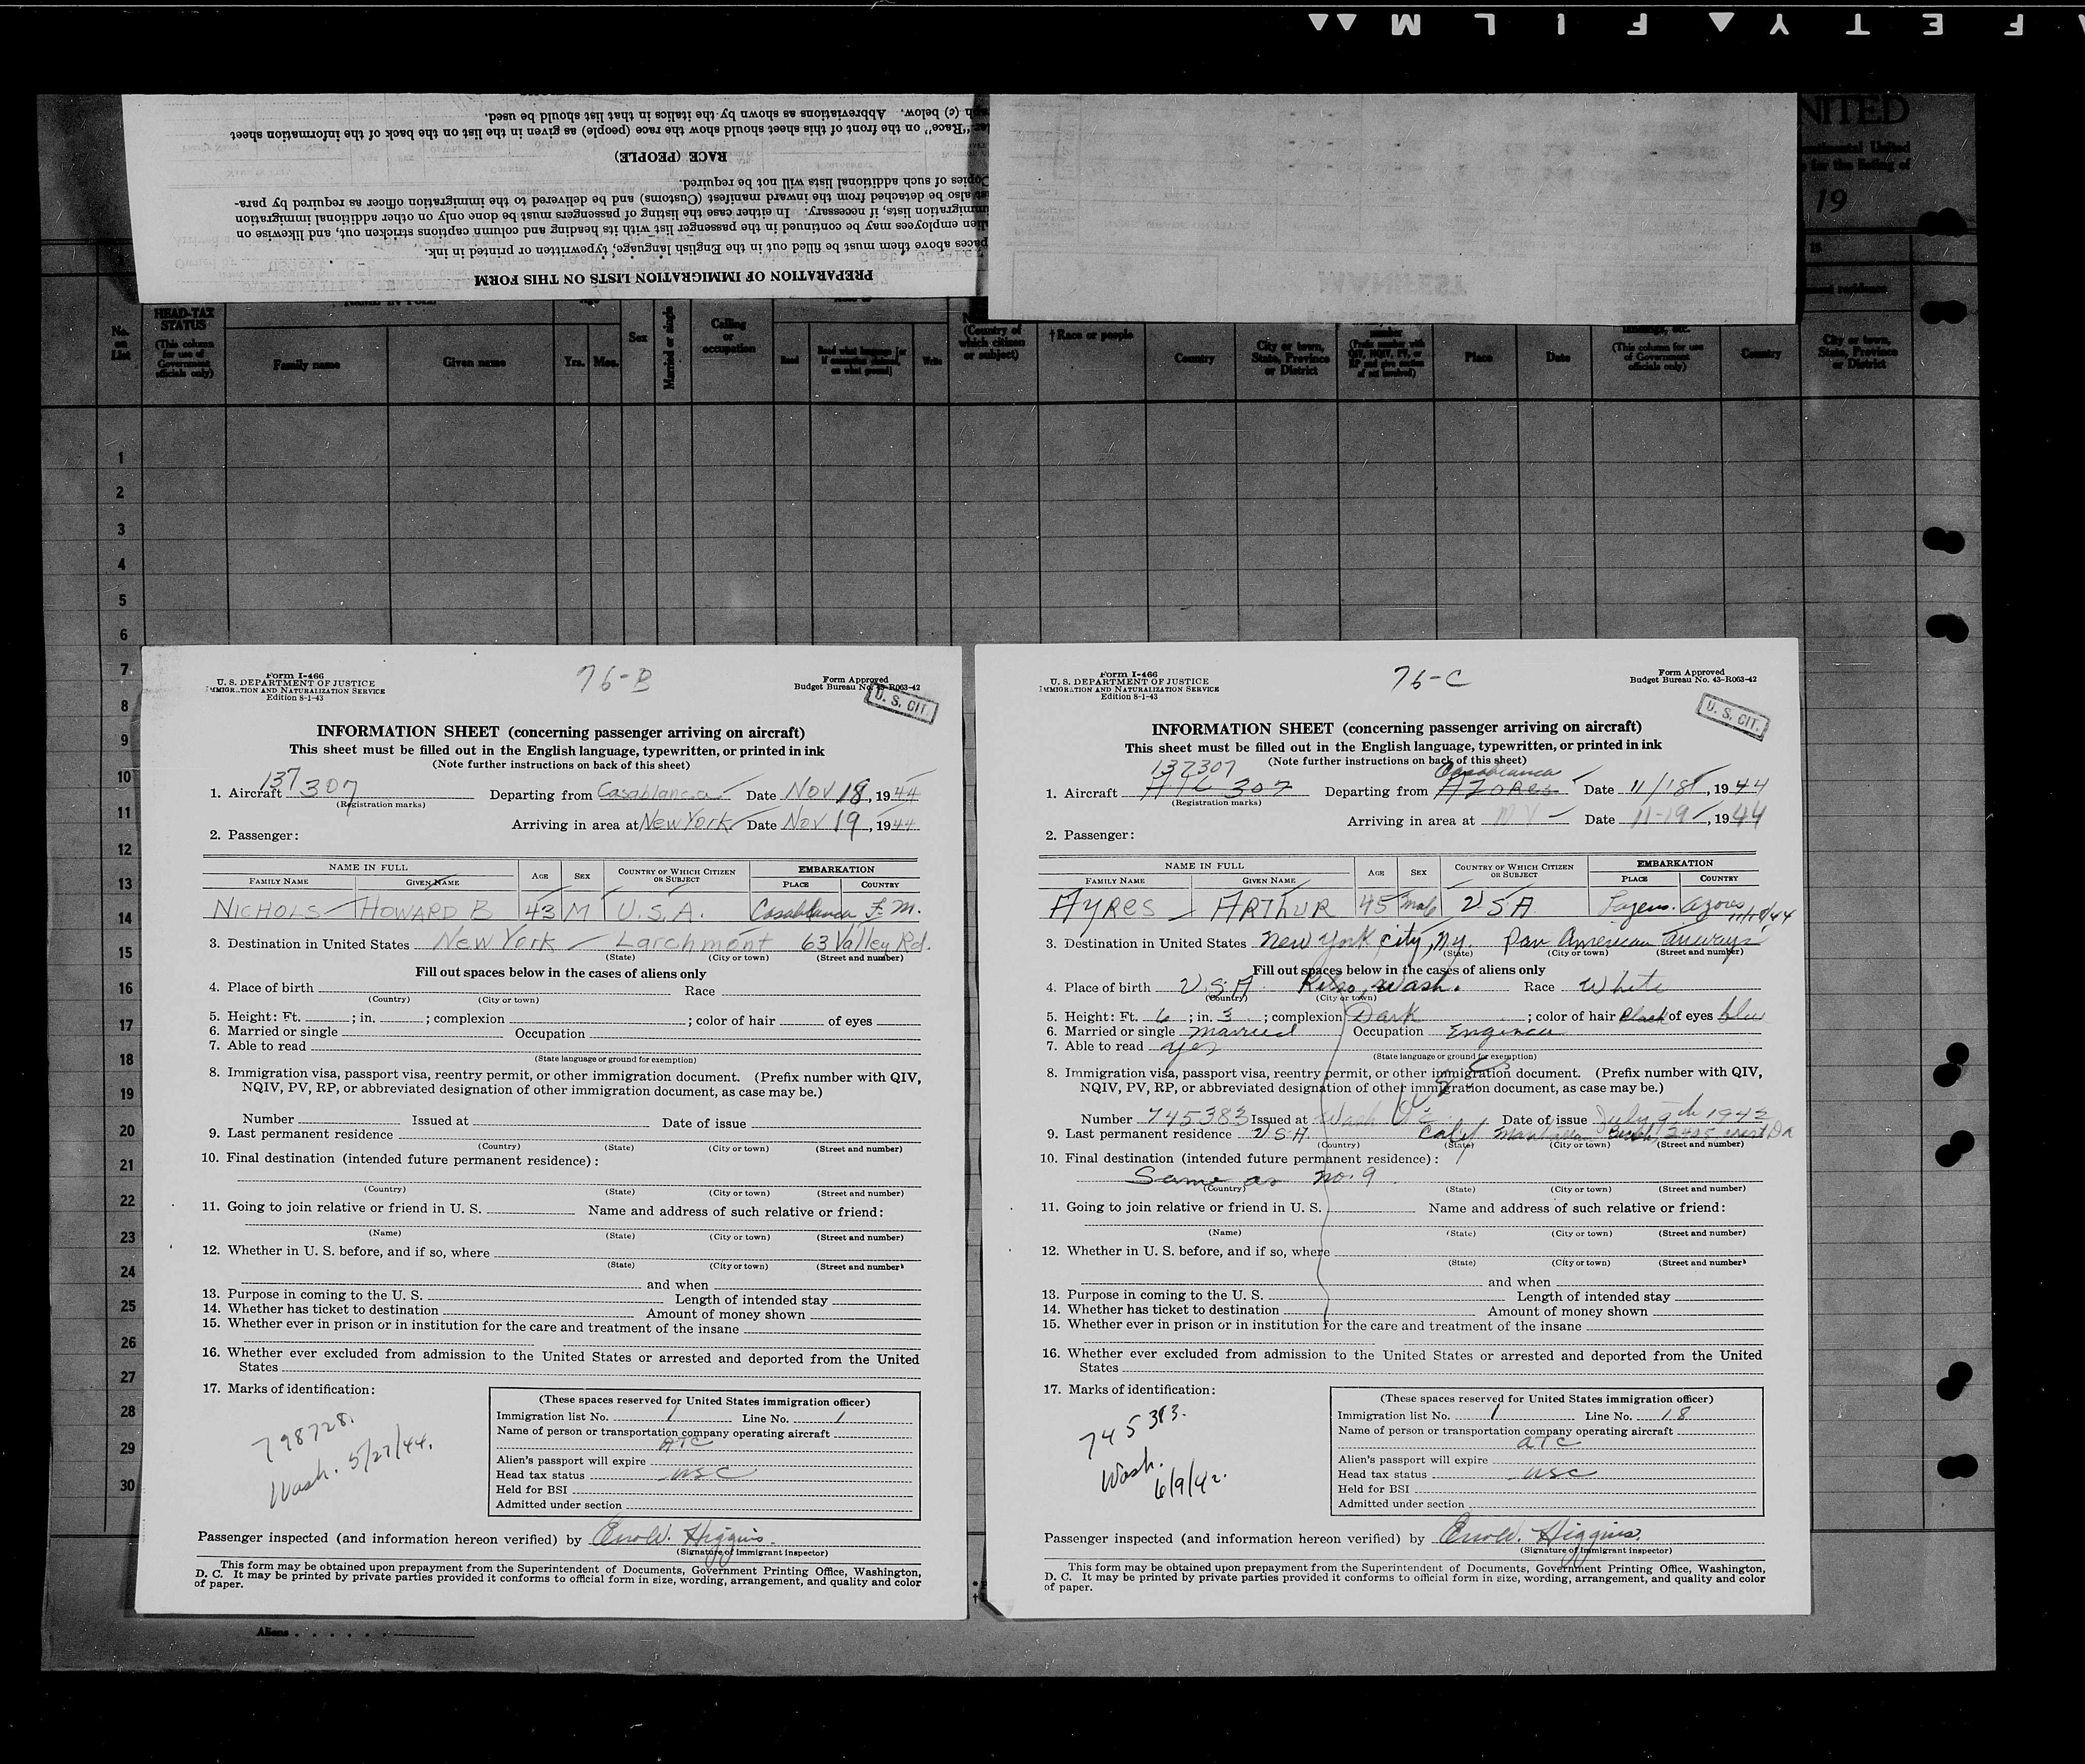 SAFETY▲FILM▲▲
PREPARATION OF IMMIGRATION LISTS ON THIS FORM
paces above them must be filled out in the English language, typewritten or printed in ink.
lien employees may be continued in the passenger list with its heading and column captions stricken out, and likewise on
mmigration lists, if necessary. In either case the listing of passengers must be done only on other additional immigration
st also be detached from the inward manifest (Customs) and be delivered to the immigration officer as required by para-
Copies of such additional lists will not be required.
RACE (PEOPLE)
"Race" on the front of this sheet should show the race (people) as given in the list on the back of the information sheet
ph (c) below. Abbreviations as shown by the italics in that list should be used.
MANIFEST
NITED
ontinental United
for the listing of
19
No. on List
HEAD-TAX STATUS
(This column for use of Government officials only)
Family name
Given name
Yrs.
Mos.
Sex
Married or single
Calling or occupation
Read
Read what language (or if exemption claimed, on what ground)
Write
(Country of which citizen or subject)
†Race or people
Country
City or town, State, Province or District
number
(Prefix number with QIV, NQIV, PV, or RP and give section of act involved)
Place
Date
(This column for use of Government officials only)
Country
City or town, State, Province or District
1
2
3
4
5
6
7
8
9
10
11
12
13
14
15
16
17
18
19
20
21
22
23
24
25
26
27
28
29
30
Aliens
Form I-466
U. S. DEPARTMENT OF JUSTICE
IMMIGRATION AND NATURALIZATION SERVICE
Edition 8-1-43
76-B
Form Approved
Budget Bureau No. 43-R063-42
U. S. CIT.
INFORMATION SHEET (concerning passenger arriving on aircraft)
This sheet must be filled out in the English language, typewritten, or printed in ink
(Note further instructions on back of this sheet)
1. Aircraft 137307 Departing from Casablanca Date Nov 18, 1944
(Registration marks)
Arriving in area at New York Date Nov 19, 1944
2. Passenger:
NAME IN FULL AGE SEX COUNTRY OF WHICH CITIZEN OR SUBJECT EMBARKATION
FAMILY NAME GIVEN NAME PLACE COUNTRY
NICHOLS HOWARD B 43 M U.S.A. Casablanca F.M.
3. Destination in United States New York Larchmont 63 Valley Rd.
(State) (City or town) (Street and number)
Fill out spaces below in the cases of aliens only
4. Place of birth Race
(Country) (City or town)
5. Height: Ft. ; in. ; complexion ; color of hair of eyes
6. Married or single Occupation
7. Able to read
(State language or ground for exemption)
8. Immigration visa, passport visa, reentry permit, or other immigration document. (Prefix number with QIV,
NQIV, PV, RP, or abbreviated designation of other immigration document, as case may be.)
Number Issued at Date of issue
9. Last permanent residence
(Country) (State) (City or town) (Street and number)
10. Final destination (intended future permanent residence):
(Country) (State) (City or town) (Street and number)
11. Going to join relative or friend in U. S. Name and address of such relative or friend:
(Name) (State) (City or town) (Street and number)
12. Whether in U. S. before, and if so, where
(State) (City or town) (Street and number)
and when
13. Purpose in coming to the U. S. Length of intended stay
14. Whether has ticket to destination Amount of money shown
15. Whether ever in prison or in institution for the care and treatment of the insane
16. Whether ever excluded from admission to the United States or arrested and deported from the United
States
17. Marks of identification:
798728.
Wash. 5/27/44.
(These spaces reserved for United States immigration officer)
Immigration list No. 1 Line No. 1
Name of person or transportation company operating aircraft
ATC
Alien's passport will expire
Head tax status USC
Held for BSI
Admitted under section
Passenger inspected (and information hereon verified) by Enol W. Higgins.
(Signature of immigrant inspector)
This form may be obtained upon prepayment from the Superintendent of Documents, Government Printing Office, Washington,
D. C. It may be printed by private parties provided it conforms to official form in size, wording, arrangement, and quality and color
of paper.
Form I-466
U. S. DEPARTMENT OF JUSTICE
IMMIGRATION AND NATURALIZATION SERVICE
Edition 8-1-43
76-C
Form Approved
Budget Bureau No. 43-R063-42
U. S. CIT.
INFORMATION SHEET (concerning passenger arriving on aircraft)
This sheet must be filled out in the English language, typewritten, or printed in ink
(Note further instructions on back of this sheet)
137307 Casablanca
1. Aircraft ATC 307 Departing from AZORES Date 11/18, 1944
(Registration marks)
Arriving in area at N Y Date 11-19, 1944
2. Passenger:
NAME IN FULL AGE SEX COUNTRY OF WHICH CITIZEN OR SUBJECT EMBARKATION
FAMILY NAME GIVEN NAME PLACE COUNTRY
AYRES ARTHUR 45 male USA Lagens. Azores 11/18/44
3. Destination in United States New York City, N.Y. Pan American Airways
(State) (City or town) (Street and number)
Fill out spaces below in the cases of aliens only
4. Place of birth USA Kelso, Wash. Race White
(Country) (City or town)
5. Height: Ft. 6 ; in. 3 ; complexion Dark ; color of hair Black of eyes blue
6. Married or single married Occupation Engineer
7. Able to read yes
(State language or ground for exemption)
8. Immigration visa, passport visa, reentry permit, or other immigration document. (Prefix number with QIV,
NQIV, PV, RP, or abbreviated designation of other immigration document, as case may be.)
USC
Number 745383 Issued at Wash D C Date of issue July 9th 1942
9. Last permanent residence USA. Calif Manhattan Beach, 2405 Crest Dr
(Country) (State) (City or town) (Street and number)
10. Final destination (intended future permanent residence):
Same as no. 9
(Country) (State) (City or town) (Street and number)
11. Going to join relative or friend in U. S. Name and address of such relative or friend:
(Name) (State) (City or town) (Street and number)
12. Whether in U. S. before, and if so, where
(State) (City or town) (Street and number)
and when
13. Purpose in coming to the U. S. Length of intended stay
14. Whether has ticket to destination Amount of money shown
15. Whether ever in prison or in institution for the care and treatment of the insane
16. Whether ever excluded from admission to the United States or arrested and deported from the United
States
17. Marks of identification:
745383.
Wash.
6/9/42.
(These spaces reserved for United States immigration officer)
Immigration list No. 1 Line No. 18
Name of person or transportation company operating aircraft
ATC
Alien's passport will expire
Head tax status USC
Held for BSI
Admitted under section
Passenger inspected (and information hereon verified) by Enol W. Higgins.
(Signature of immigrant inspector)
This form may be obtained upon prepayment from the Superintendent of Documents, Government Printing Office, Washington,
D. C. It may be printed by private parties provided it conforms to official form in size, wording, arrangement, and quality and color
of paper.